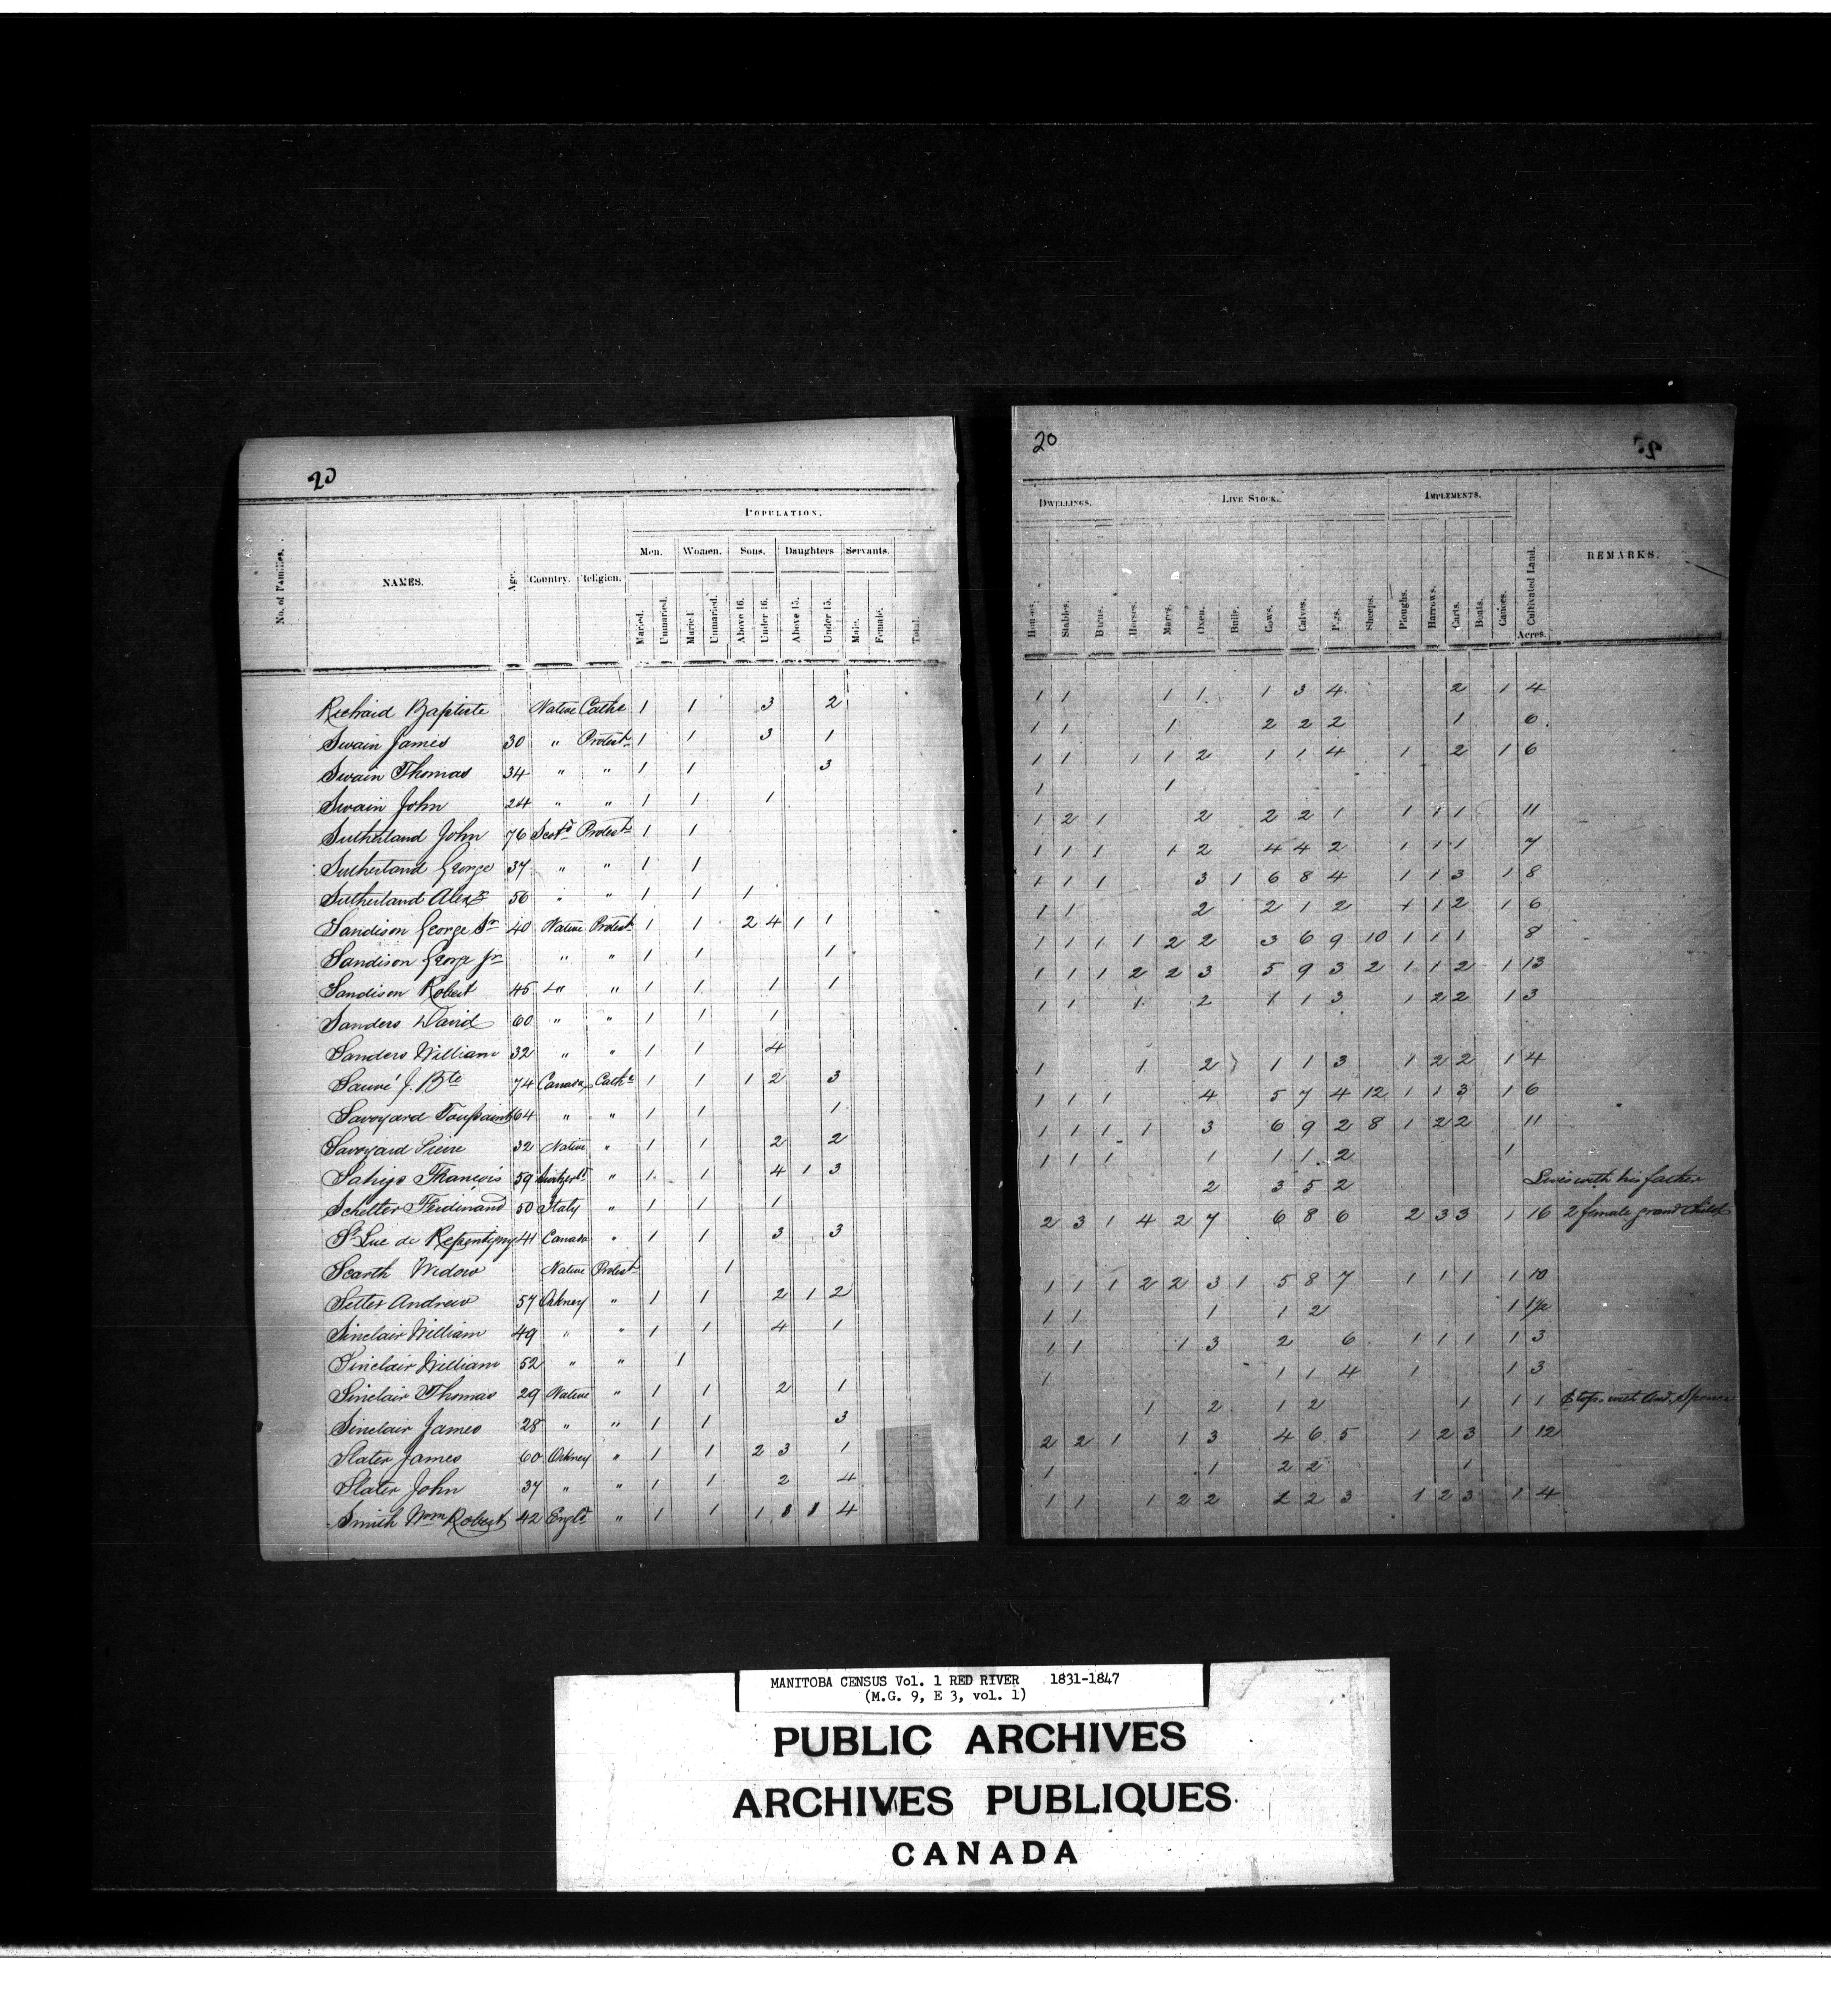 20
POPULATION.
Men. Women. Sons. Daughters. Servants.
No. of Families. NAMES. Age. Country. Religion. Maried. Unmaried. Maried Unmaried. Above 16. Under 16. Above 15. Under 15. Male. Female. Total.
Richard Baptiste Native Cathc 1 1 3 2
Swain James 30 " Protest. 1 1 3 1
Swain Thomas 34 " " 1 1 3
Swain John 24 " " 1 1 1
Sutherland John 76 Scotd Protest. 1 1
Sutherland George 37 " " 1 1
Sutherland Alexr 56 " " 1 1 1
Sandison George Sr 40 Native Protest. 1 1 2 4 1 1
Sandison George Jr " " 1 1 1
Sandison Robert 45 " " 1 1 1 1
Sanders David 60 " " 1 1 1
Sanders William 32 " " 1 1 4
Sauvé J. Bte 74 Canada Cathc 1 1 1 2 3
Savoyard Toussaint 64 " " 1 1 1
Savoyard Pierre 32 Native " 1 1 2 2
François 59 Switzerld " 1 1 4 1 3
Schelter Ferdinand 50 Italy " 1 1 1
St Luc de Repentigny 41 Canada " 1 1 3 3
Scarth Widow Native Protest. 1
Setter Andrew 57 Orkney " 1 1 2 1 2
Sinclair William 49 " " 1 1 4 1
Sinclair William 52 " " 1
Sinclair Thomas 29 Native " 1 1 2 1
Sinclair James 28 " " 1 1 3
Slater James 60 Orkney " 1 1 2 3 1
Slater John 37 " " 1 1 2 4
Smith Wm Robert 42 Engld " 1 1 1 3 1 4
20
DWELLINGS. LIVE STOCK. IMPLEMENTS.
Houses. Stables. Barns. Horses. Mares. Oxen. Bulls. Cows. Calves. Pigs. Sheeps. Ploughs. Harrows. Carts. Boats. Canoes. Cultivated Land. REMARKS.
Acres.
1 1 1 1 1 3 4 2 1 4
1 1 1 2 2 2 1 6
1 1 1 1 2 1 1 4 1 2 1 6
1 1
1 2 1 2 2 2 1 1 1 1 11
1 1 1 1 2 4 4 2 1 1 1 7
1 1 1 3 1 6 8 4 1 1 3 1 8
1 1 2 2 1 2 1 1 2 1 6
1 1 1 1 2 2 3 6 9 10 1 1 1 8
1 1 1 2 2 3 5 9 3 2 1 1 2 1 13
1 1 1 2 1 1 3 1 2 2 1 3
1 1 2 1 1 3 1 2 2 1 4
1 1 1 4 5 7 4 12 1 1 3 1 6
1 1 1 1 3 6 9 2 8 1 2 2 11
1 1 1 1 1 1 2 1
2 3 5 2 Lives with his father
2 3 1 4 2 7 6 8 6 2 3 3 1 16 2 female grand Child
1 1 1 2 2 3 1 5 8 7 1 1 1 1 10
1 1 1 1 2 1 1½
1 1 1 3 2 6 1 1 1 1 3
1 1 1 4 1 1 3
1 2 1 2 1 1 1 Stops with And. Spence
2 2 1 1 3 4 6 5 1 2 3 1 12
1 1 2 2 1
1 1 1 2 2 2 2 3 1 2 3 1 4
MANITOBA CENSUS Vol. 1 RED RIVER 1831-1847
(M.G. 9, E 3, vol. 1)
PUBLIC ARCHIVES
ARCHIVES PUBLIQUES
CANADA